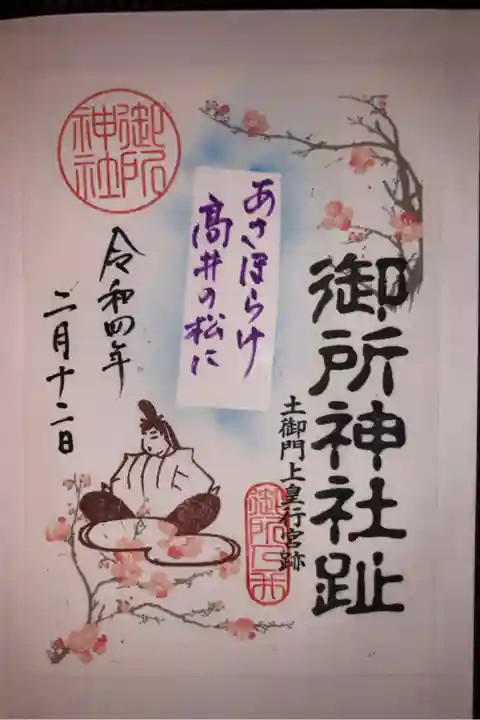 御所神社趾
土御門上皇行宮跡
あさぼらけ
高井の松に
令和四年
二月十二日
御所
神社